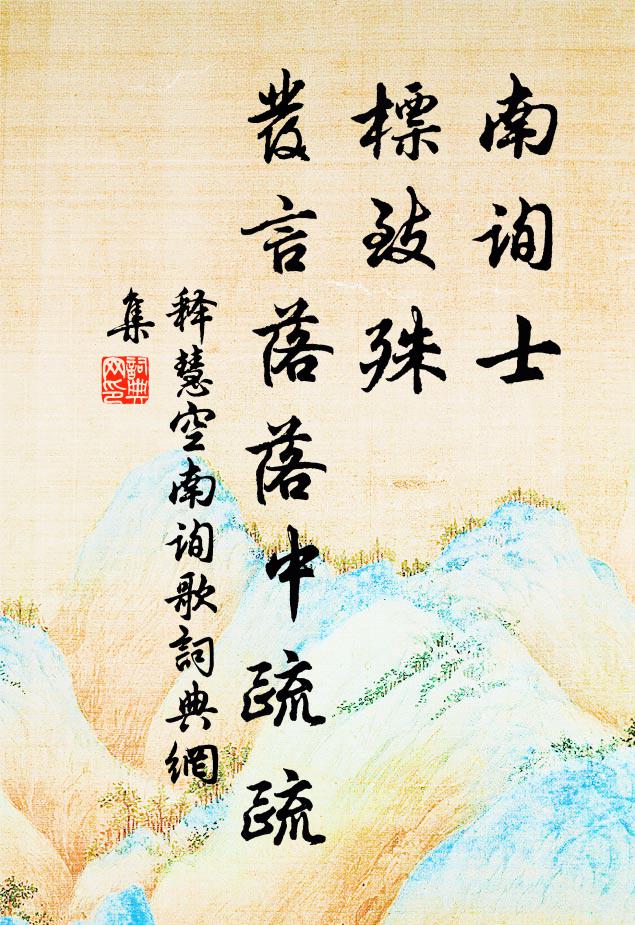 南询士
標致殊
發言落落中疏疏
释慧空南询歌詞典網
集
詞典
网印